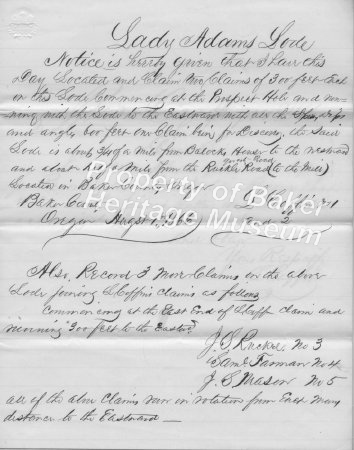 Lady Adams Lode
Notice is hereby given that I have this
Day Located and Claim two Claims of 300 feet that
on this Lode Commencing at the Prospect Hole and run-
ning with the Lode to the Eastward with all the Spurs
and angles 600 feet one Claim bein for Discovry, the Said
Lode is about 3/4 of a Mile from House to the westward
and about of a Mile from the Ruckles Road to the Mill
Located in Baker County
Baker
Oregon August
No 1
and 2
Also, Record 3 More Claims on the above
Lode joining S Coffins claims as follows
Commencing at the East End of S Coff claim and
running 300 feet to the Eastwd
J S Ruckel No 3
Saml Tarman No 4
J S Mason No 5
all of the above Claims run in rotation from Each
distance to the Eastward
Property of Baker
Heritage Museum